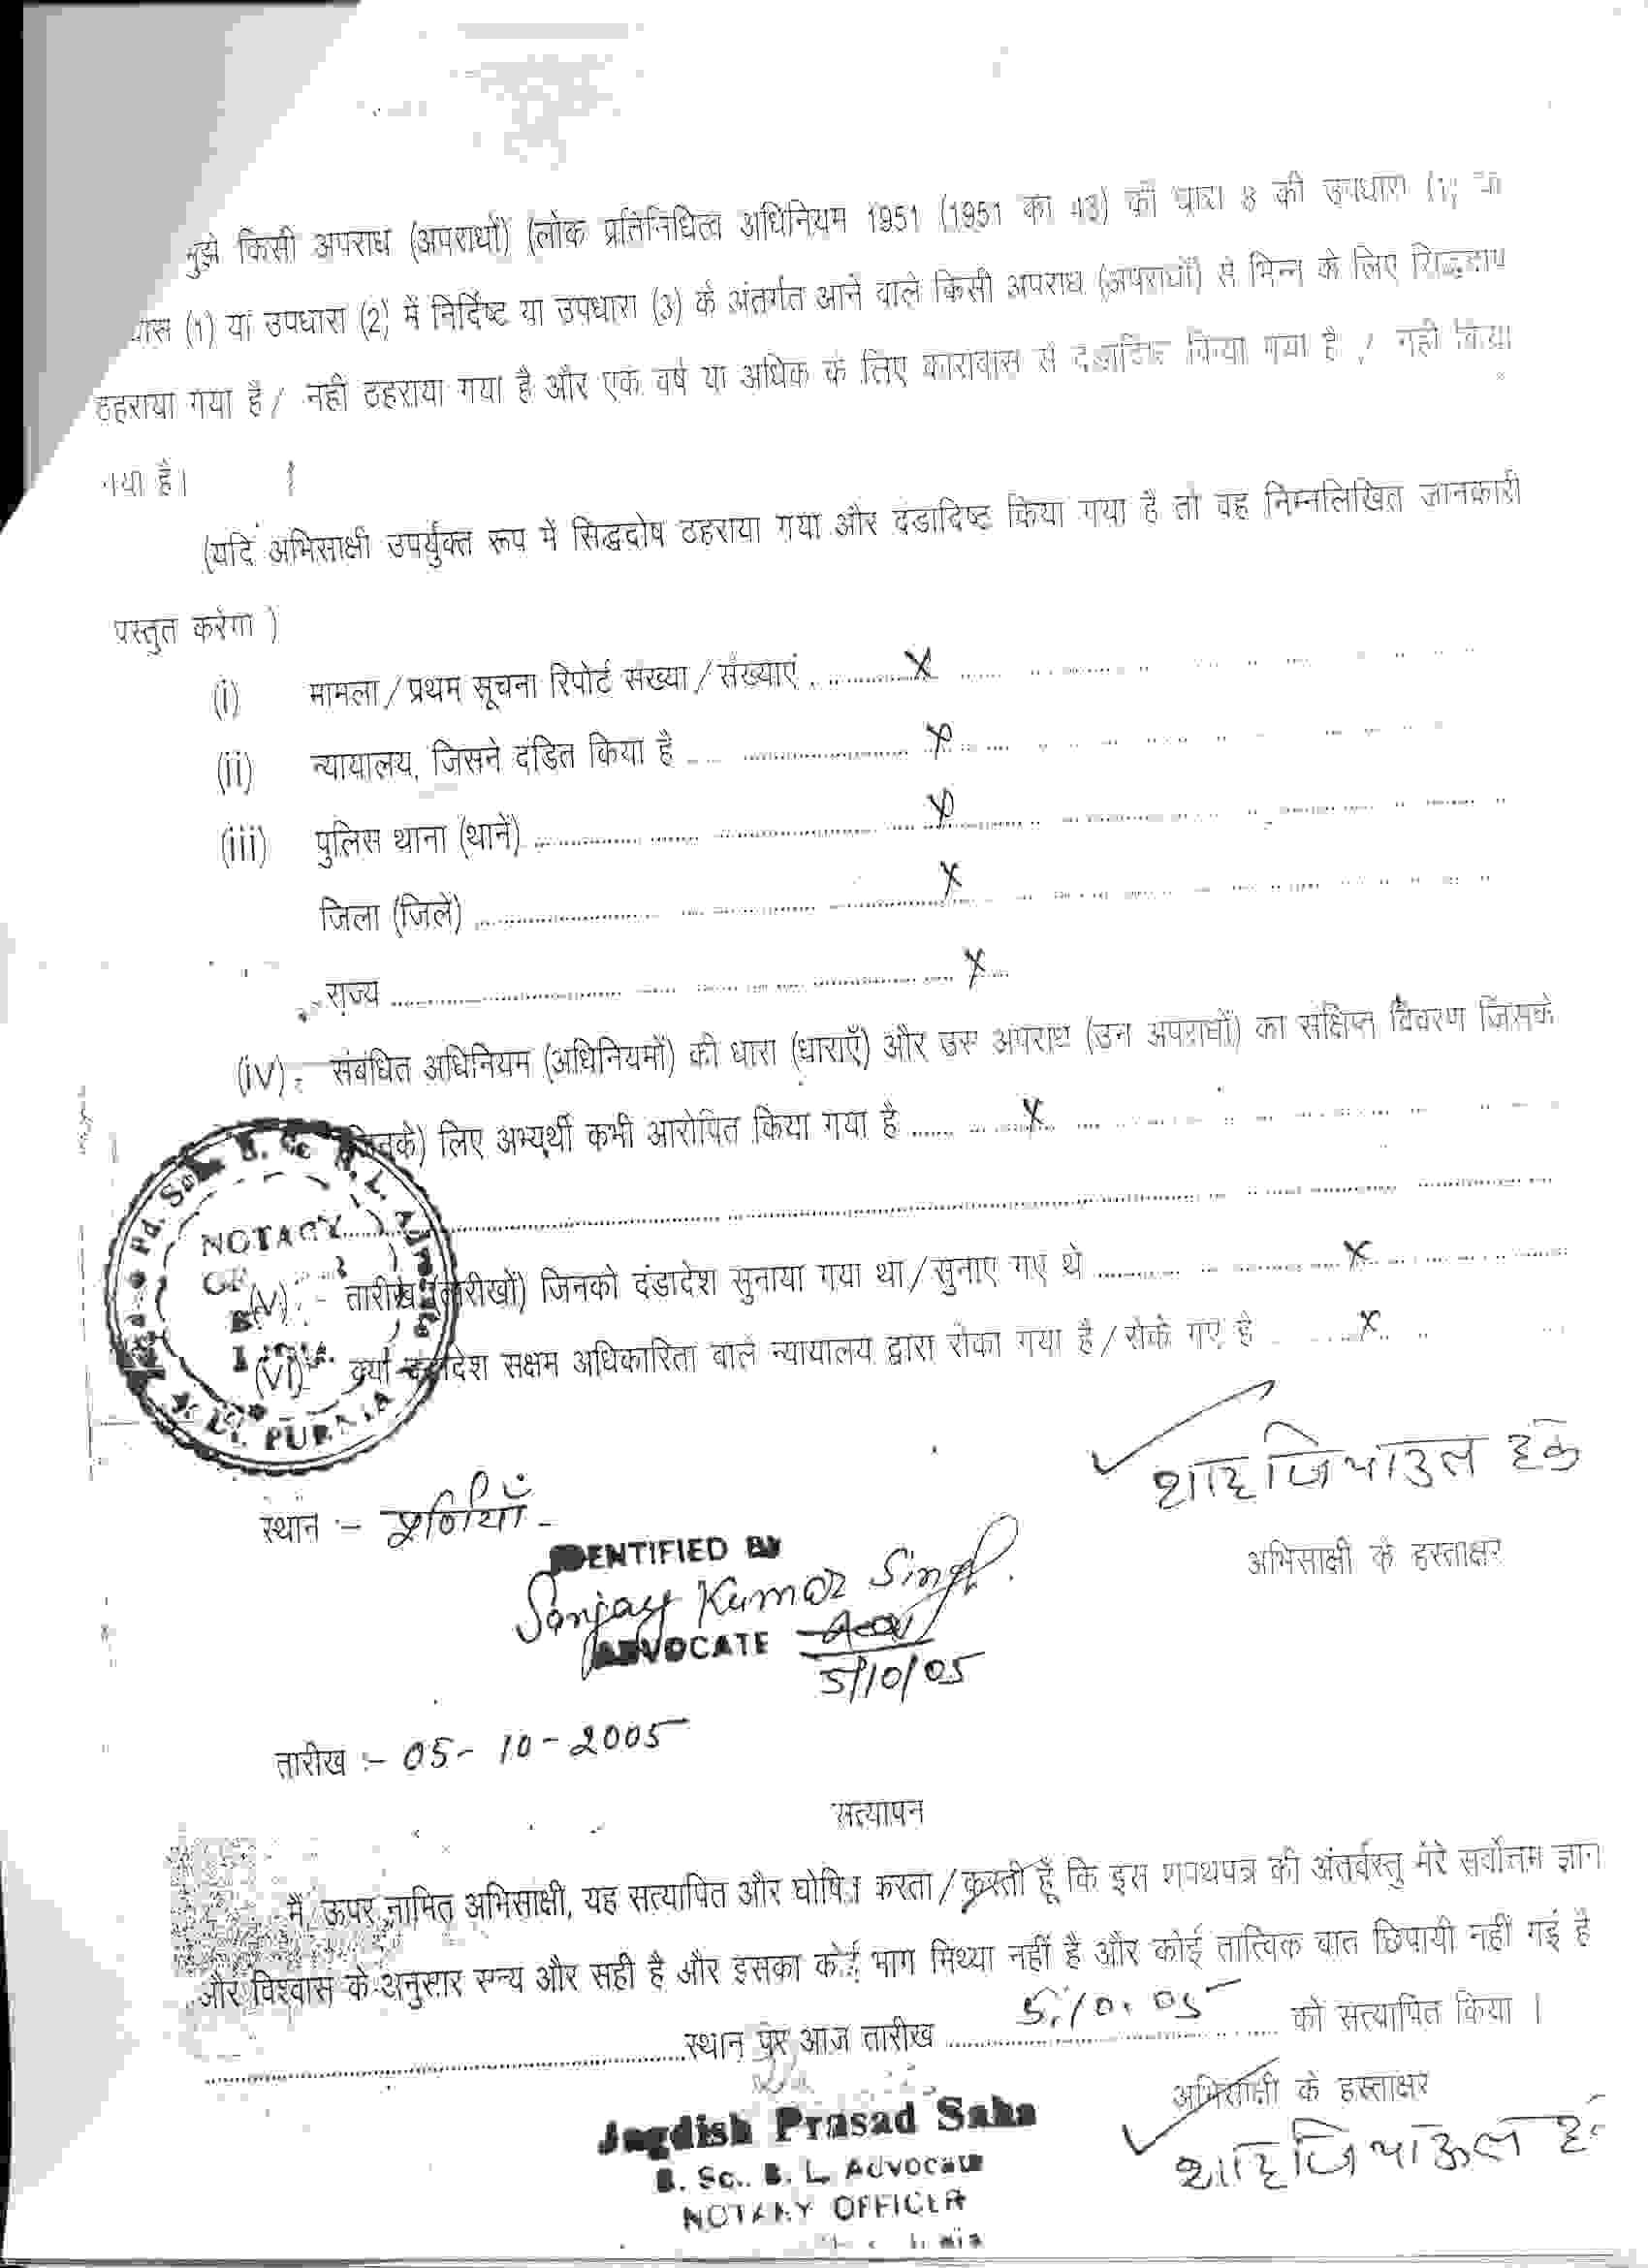 मुझे किसी अपराध (अपराधों) (लोक प्रतिनिधित्व अधिनियम 1951 (1951 का 43) की धारा 8 की उपधारा (1)
(1) या उपधारा (2) में निर्दिष्ट या उपधारा (3) के अंतर्गत आने वाले किसी अपराध (अपराधों) से भिन्न के लिए सिद्धदोष
ठहराया गया है / नहीं ठहराया गया है और एक वर्ष या अधिक के लिए कारावास से दंडादिष्ट किया गया है / नहीं किया
गया है।
(यदि अभिसाक्षी उपर्युक्त रूप में सिद्धदोष ठहराया गया और दंडादिष्ट किया गया है तो वह निम्नलिखित जानकारी
प्रस्तुत करेगा )
(i) मामला / प्रथम सूचना रिपोर्ट संख्या / संख्याएं ........ X
(ii) न्यायालय, जिसने दंडित किया है ........ X
(iii) पुलिस थाना (थानें) ........ X
जिला (जिलें) ........ X
राज्य ........ X
(iv) :- संबंधित अधिनियम (अधिनियमों) की धारा (धाराएँ) और उस अपराध (उन अपराधों) का संक्षिप्त विवरण जिसके
(जिनके) लिए अभ्यर्थी कभी आरोपित किया गया है ........ X
(v) :- तारीख (तारीखों) जिनको दंडादेश सुनाया गया था / सुनाए गए थे ........ X
(vi) क्या दंडादेश सक्षम अधिकारिता वाले न्यायालय द्वारा रोका गया है / रोके गए है ........ X
NOTARY
OF
PURNIA
शाह जियाउल हक
स्थान :- पूर्णियाँ
अभिसाक्षी के हस्ताक्षर
IDENTIFIED BY
Sanjay Kumar Singh.
ADVOCATE
5/10/05
तारीख :- 05-10-2005
सत्यापन
मैं, ऊपर नामित अभिसाक्षी, यह सत्यापित और घोषित करता / करती हूँ कि इस शपथपत्र की अंतर्वस्तु मेरे सर्वोत्तम ज्ञान
और विश्वास के अनुसार सत्य और सही है और इसका कोई भाग मिथ्या नहीं है और कोई तात्विक बात छिपायी नहीं गई है
........ स्थान पर आज तारीख ........ 5.10.05 ........ को सत्यापित किया ।
अभिसाक्षी के हस्ताक्षर
शाह जियाऊल
Jagdish Prasad Saha
B. Sc., B. L. Advocate
NOTARY OFFICER